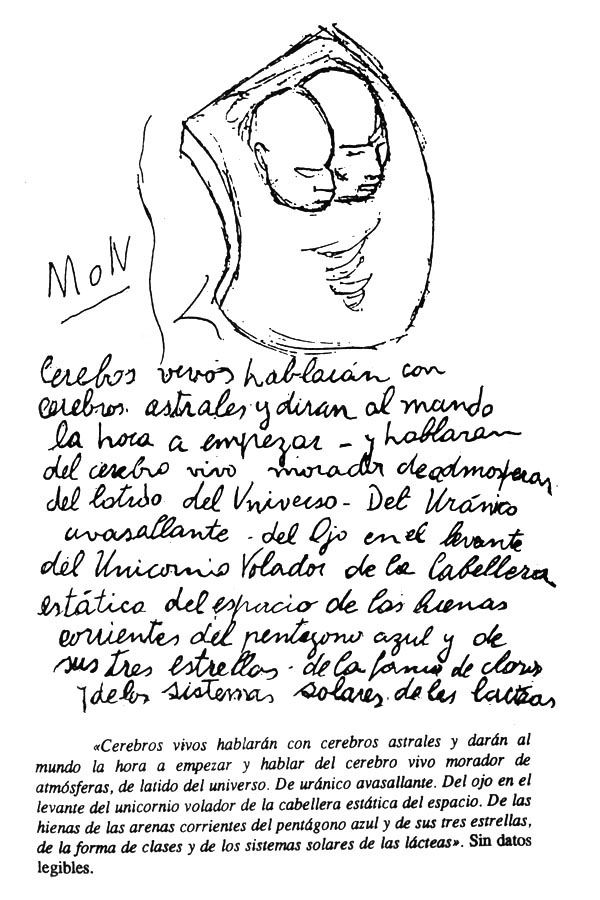 MON
Cerebos vivos hablarán con
cerebros astrales y diran al mundo
la hora a empezar - y hablaran
del cerebro vivo morador de admosferas
del latido del Universo - Del Uránico
avasallante - del Ojo en el levante
del Unicornio Volador de la Cabellera
estática del espacio de las hienas
corrientes del pentagono azul y de
sus tres estrellas - de la forma de
y de los sistemas solares de las lacteas
«Cerebros vivos hablarán con cerebros astrales y darán al
mundo la hora a empezar y hablar del cerebro vivo morador de
atmósferas, de latido del universo. De uránico avasallante. Del ojo en el
levante del unicornio volador de la cabellera estática del espacio. De las
hienas de las arenas corrientes del pentágono azul y de sus tres estrellas,
de la forma de clases y de los sistemas solares de las lácteas». Sin datos
legibles.